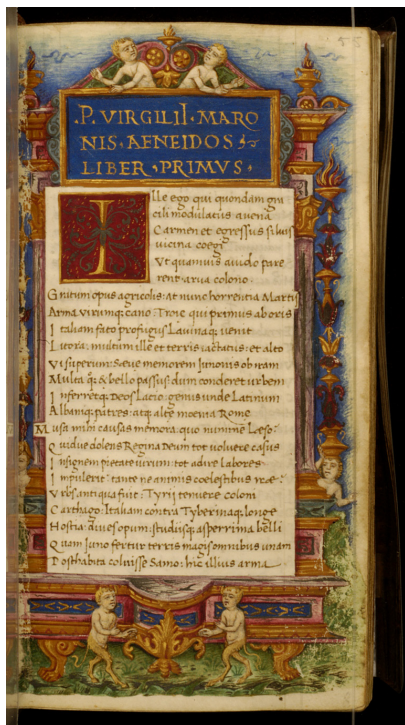 .P. VIRGILII. MARO
NIS. AENEIDOS.
LIBER. PRIMVS.
Ille ego qui quondam gra
cili modulatus auena
Carmen et egressus siluis
uicina coegi
Vt quamuis auido pare
rent arua colono:
Gnitum opus agricolis: At nunc horrentia Martis
Arma, uirumq; cano: Troie qui primus ab oris
Italiam fato profugus Lauinaq; uenit
Litora: multum ille et terris iactatus: et alto
Vi superum: Seue memorem Junonis ob iram
Multa q; & bello passus: dum conderet urbem
Inferretq; Deos Lacio: genus unde Latinum
Albanıq; patres: atq; alte moenia Rome
Musa mihi causas memora: quo numine Leso:
Quidue dolens Regina Deum tot voluere casus
Insignem pietate uirum: tot adire Labores
Impulerit: tante ne animis coelestibus irae:
Vrbs antiqua fuit: Tyrii tenuere coloni
Carthago: Italiam contra Tyberinaq; longe
Hostia: diues opum: studiisq; asperrima belli
Quam Juno fertur terris magis omnibus unam
Posthabita coluisse Samo: hic illius arma